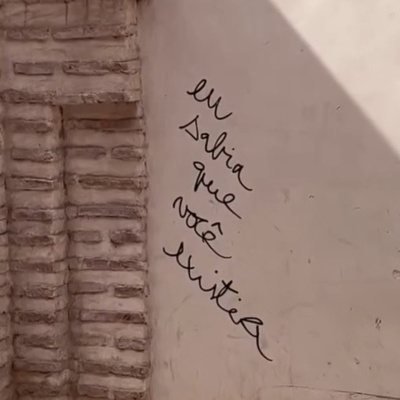 eu
sabia
que
você
existia